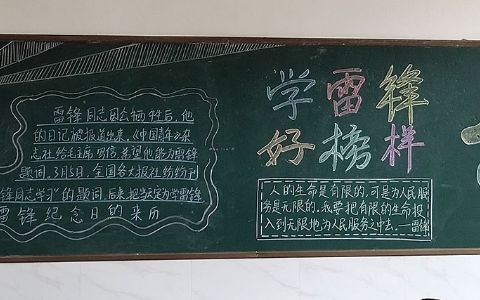 雷锋同志因公牺牲后，他
的日记被报道出来，《中国青年》杂
志社给毛主席写信，希望他能为雷锋
题词，3月5日，全国各大报社纷纷刊
锋同志学习"的题词，后来把3月5日定为学雷锋
雷锋纪念日的来历
学雷锋
好榜样
人的生命是有限的，可是为人民服
务是无限的。我要把有限的生命投
入到无限地为人民服务之中去。—雷锋